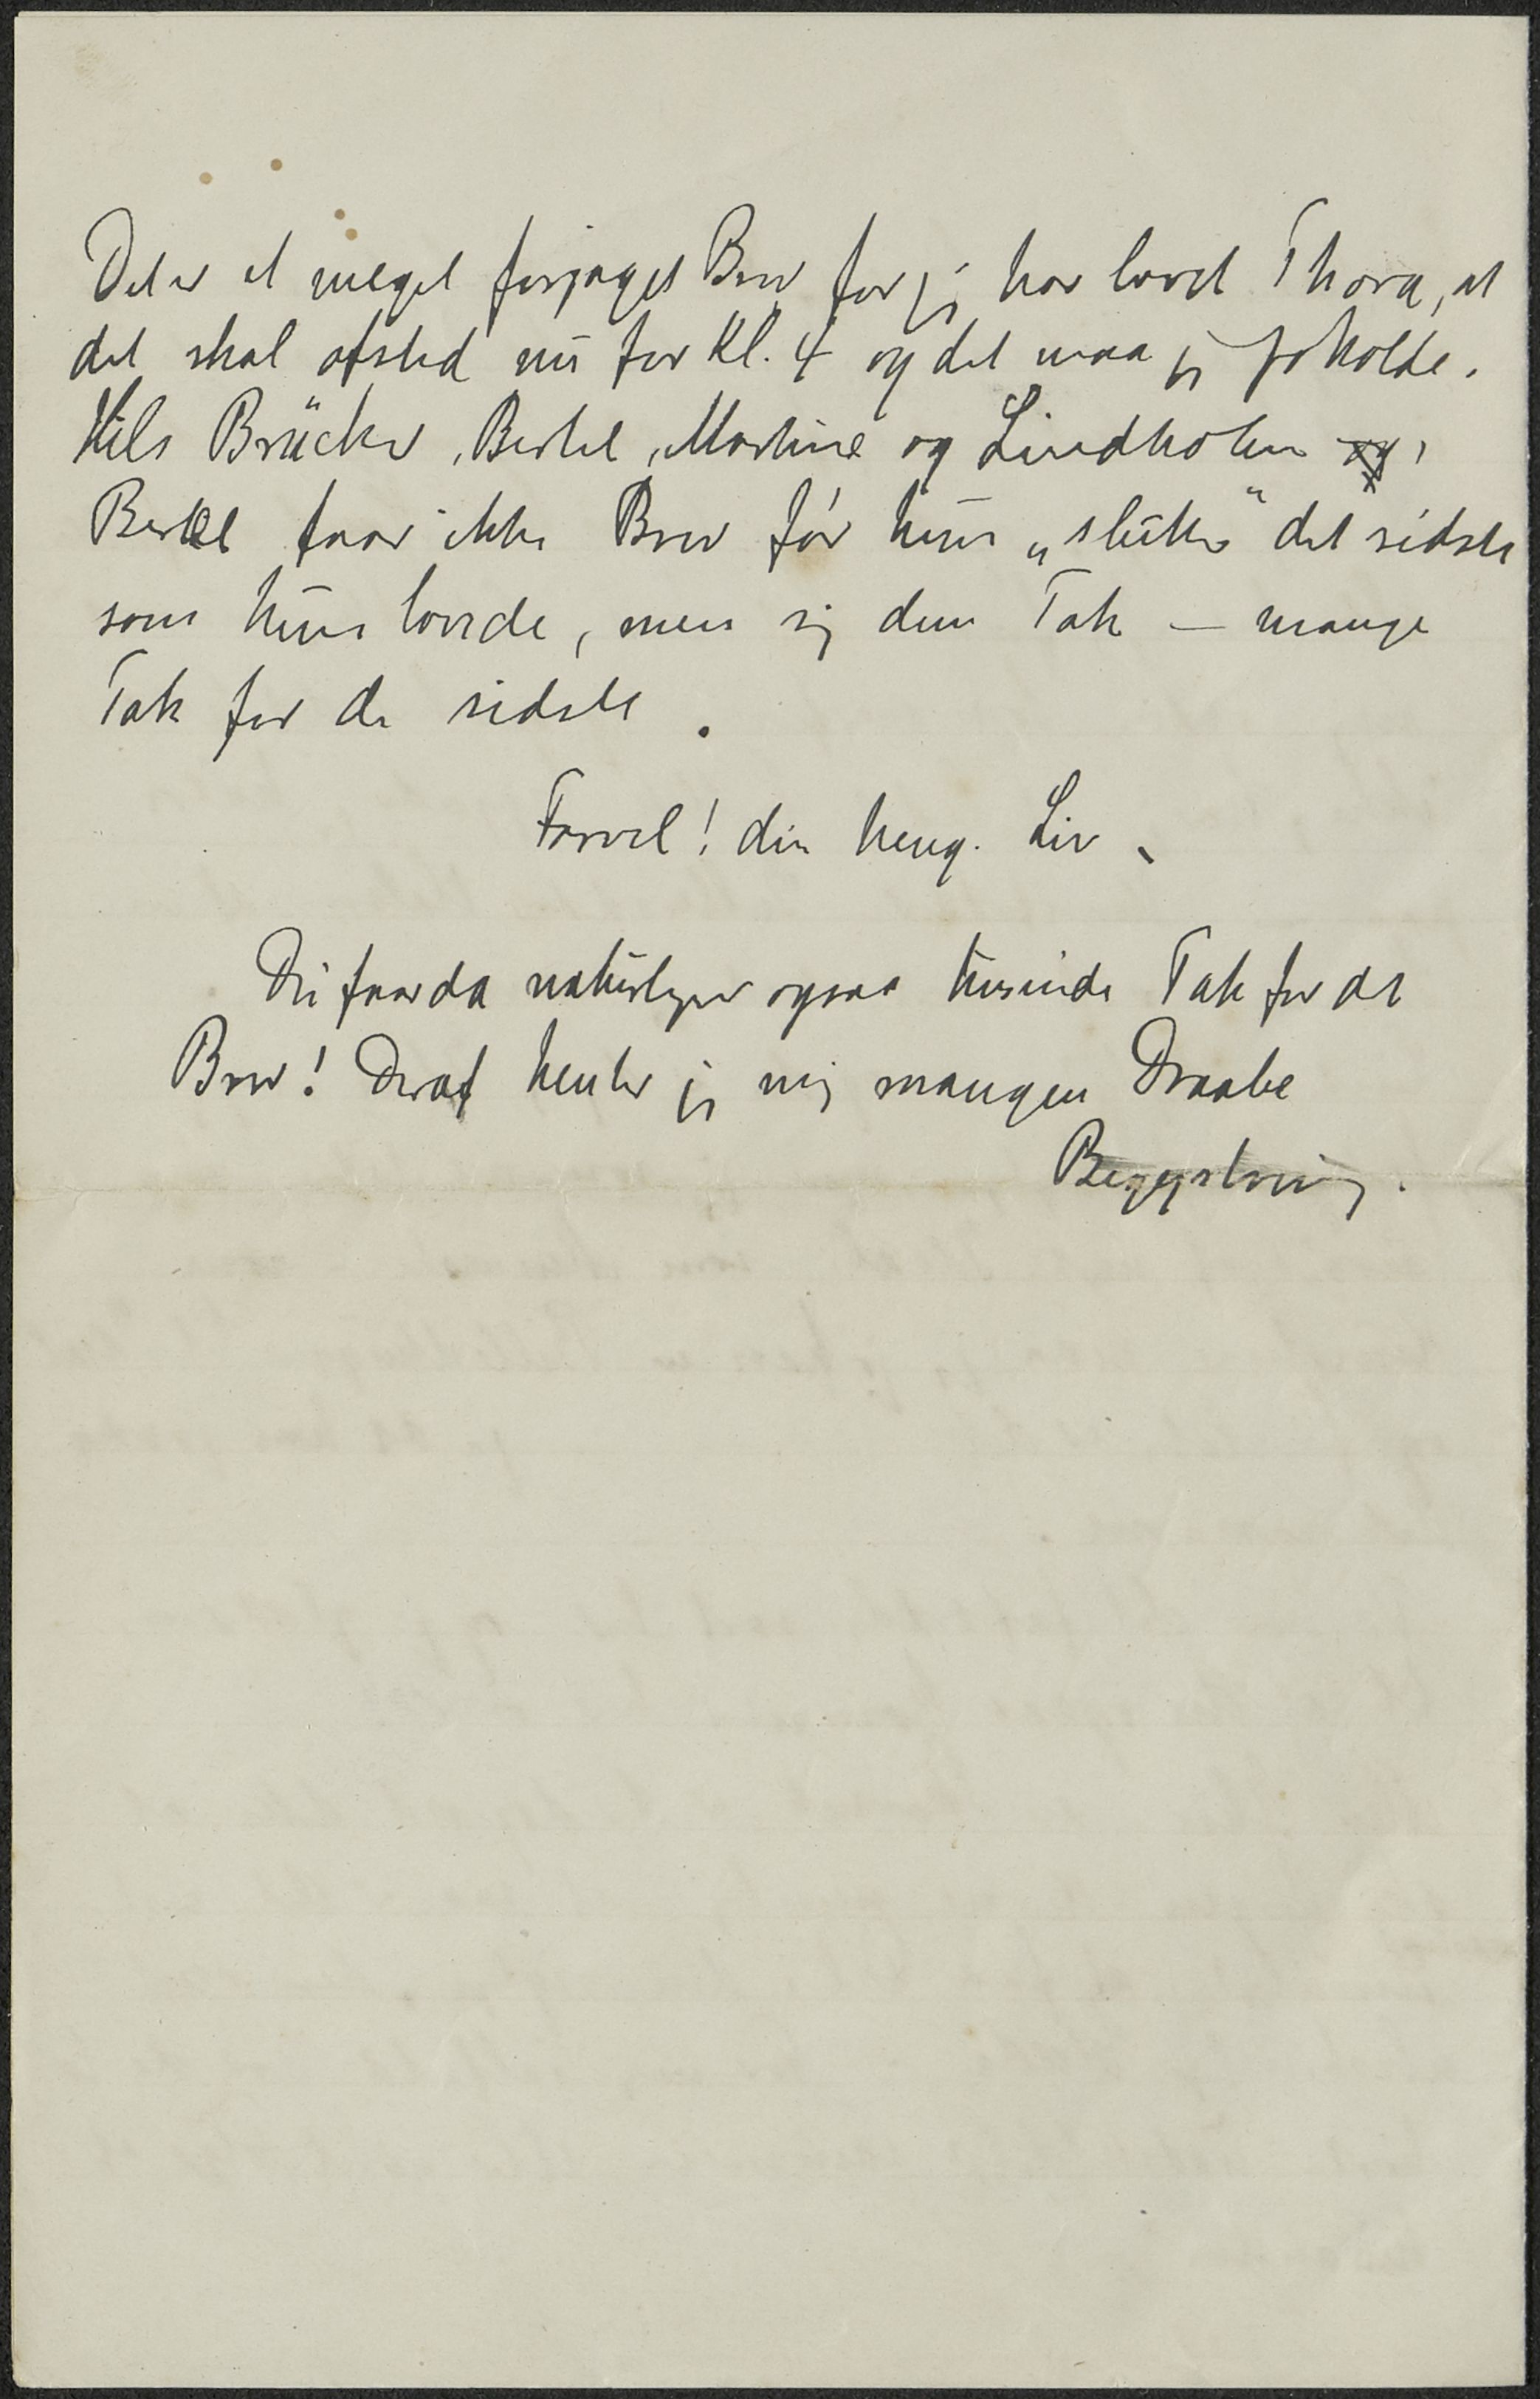 Det er et meget forjaget Brev for jeg har lovet Thora, at
det skal afsted nu før Kl. 4 og det maa jeg jo holde.
Hils Brücker, Bertel, Martine og Lindholm og,
Bertel faar ikke Brev før hun „slutter“ det sidste
som hun lovede, men sig dem Tak — mange
Tak for de sidste.
Farvel! din heng. Liv.
Du faar da naturligvis ogsaa tusinde Tak for de
Brev! Deraf henter jeg mig mangen Draabe